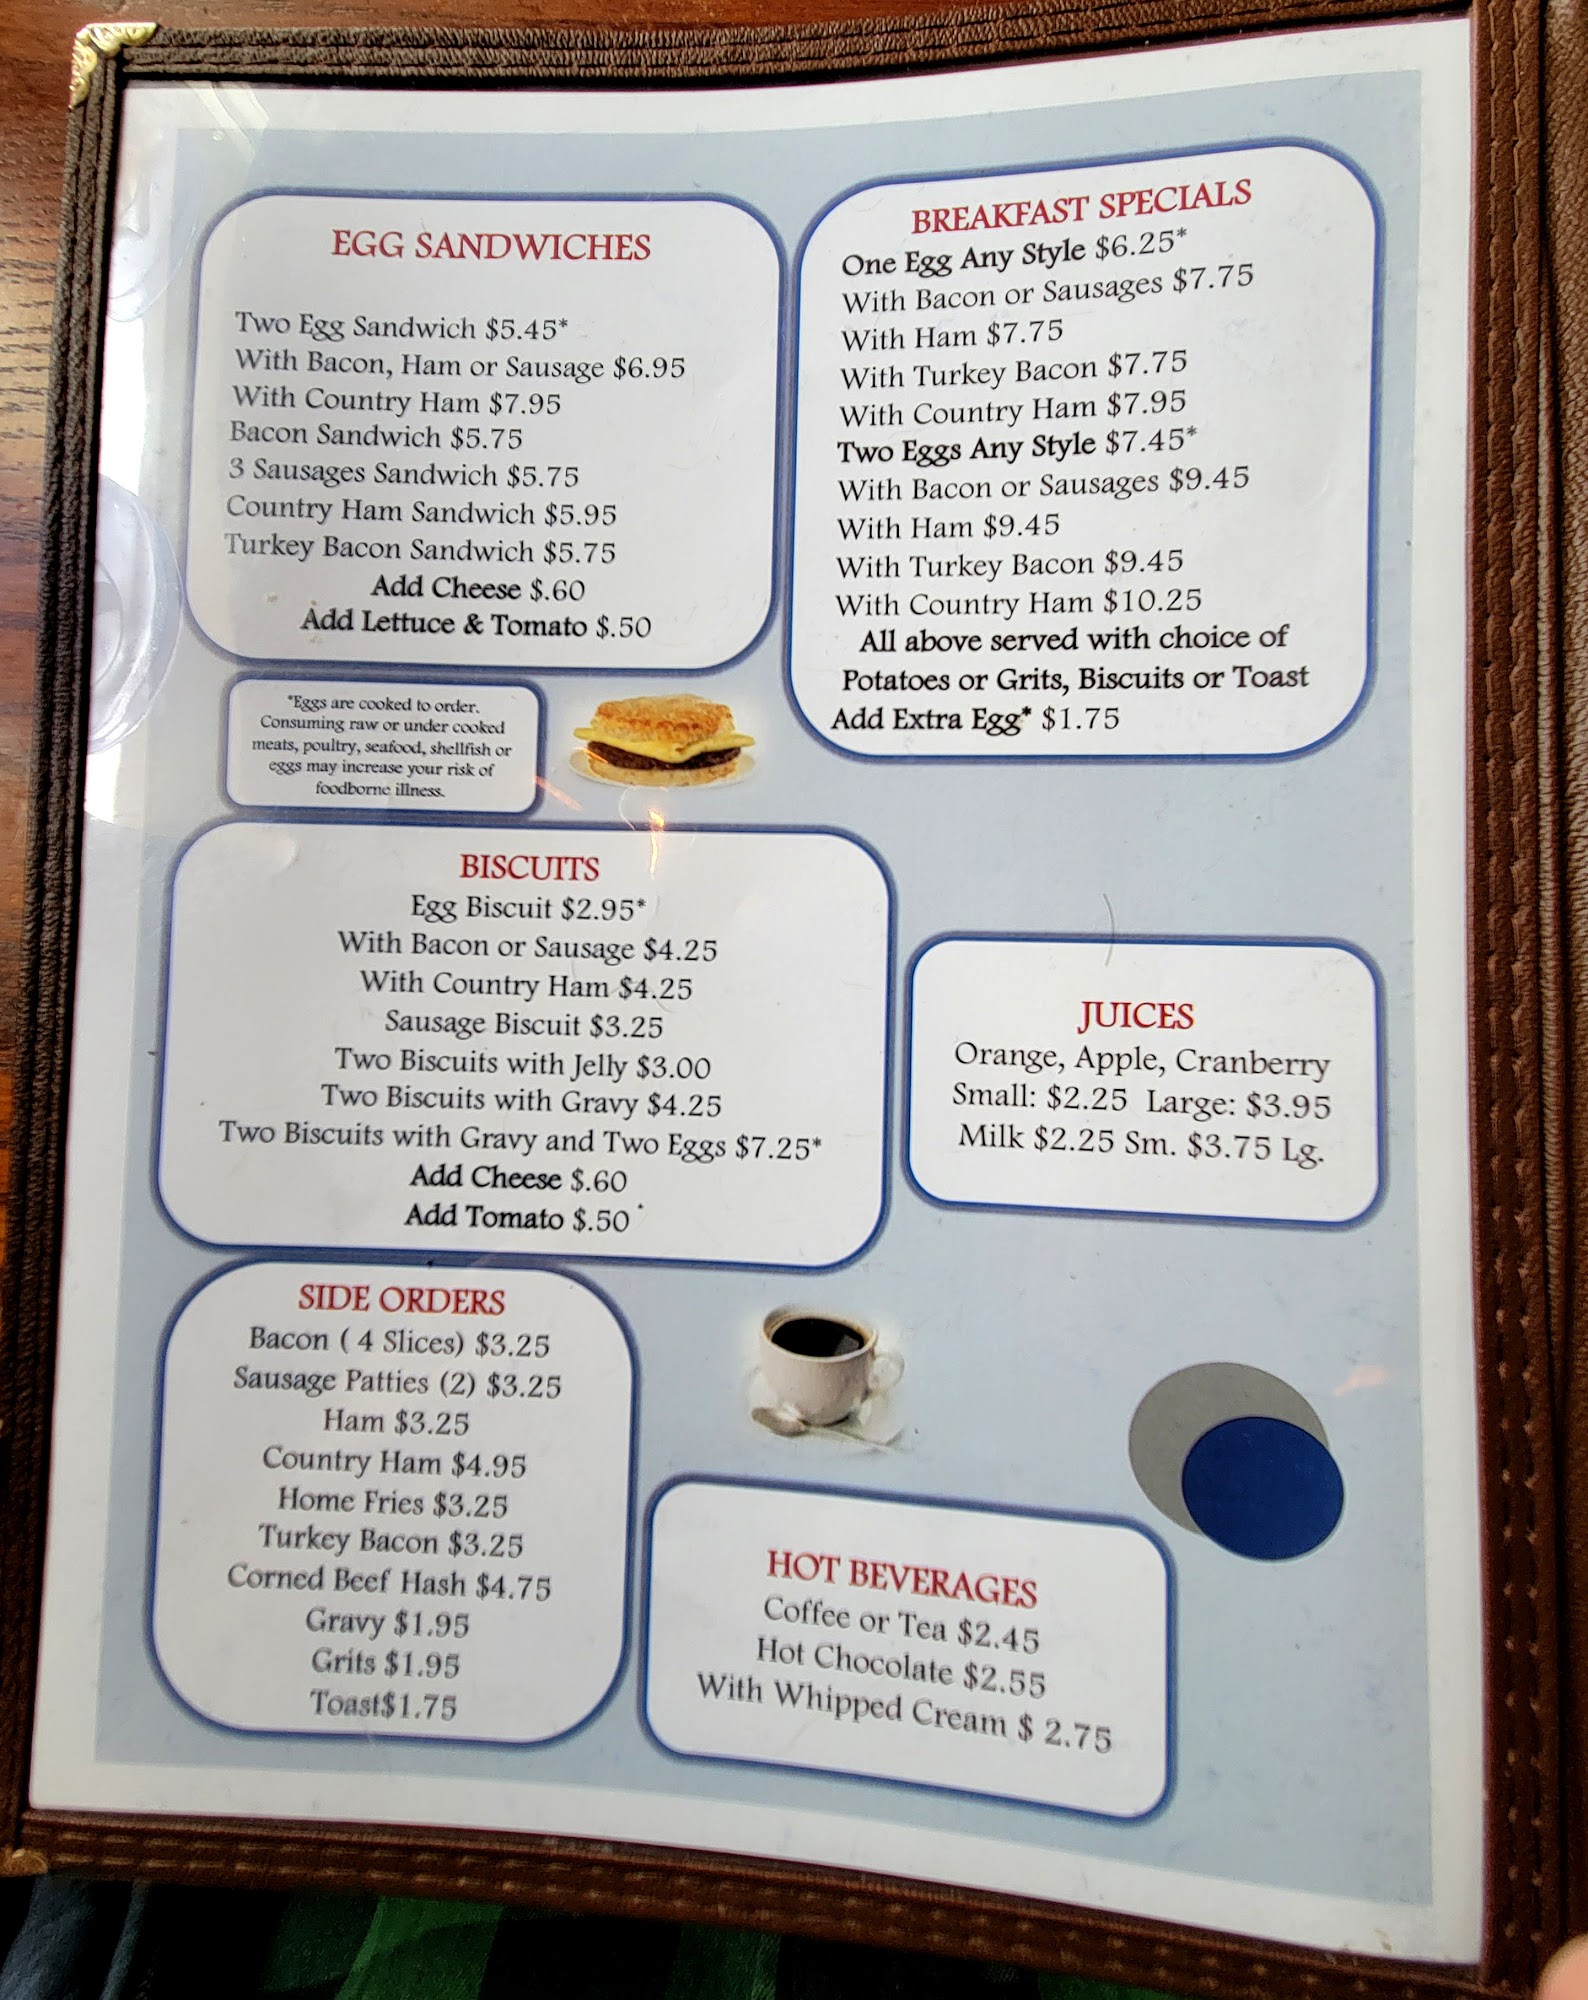 EGG SANDWICHES
Two Egg Sandwich $5.45*
With Bacon, Ham or Sausage $6.95
With Country Ham $7.95
Bacon Sandwich $5.75
3 Sausages Sandwich $5.75
Country Ham Sandwich $5.95
Turkey Bacon Sandwich $5.75
Add Cheese $.60
Add Lettuce & Tomato $.50
BREAKFAST SPECIALS
One Egg Any Style $6.25*
With Bacon or Sausages $7.75
With Ham $7.75
With Turkey Bacon $7.75
With Country Ham $7.95
Two Eggs Any Style $7.45*
With Bacon or Sausages $9.45
With Ham $9.45
With Turkey Bacon $9.45
With Country Ham $10.25
All above served with choice of
Potatoes or Grits, Biscuits or Toast
Add Extra Egg* $1.75
*Eggs are cooked to order.
Consuming raw or under cooked
meats, poultry, seafood, shellfish or
eggs may increase your risk of
foodborne illness.
BISCUITS
Egg Biscuit $2.95*
With Bacon or Sausage $4.25
With Country Ham $4.25
Sausage Biscuit $3.25
Two Biscuits with Jelly $3.00
Two Biscuits with Gravy $4.25
Two Biscuits with Gravy and Two Eggs $7.25*
Add Cheese $.60
Add Tomato $.50
JUICES
Orange, Apple, Cranberry
Small: $2.25 Large: $3.95
Milk $2.25 Sm. $3.75 Lg.
SIDE ORDERS
Bacon ( 4 Slices) $3.25
Sausage Patties (2) $3.25
Ham $3.25
Country Ham $4.95
Home Fries $3.25
Turkey Bacon $3.25
Corned Beef Hash $4.75
Gravy $1.95
Grits $1.95
Toast$1.75
HOT BEVERAGES
Coffee or Tea $2.45
Hot Chocolate $2.55
With Whipped Cream $ 2.75